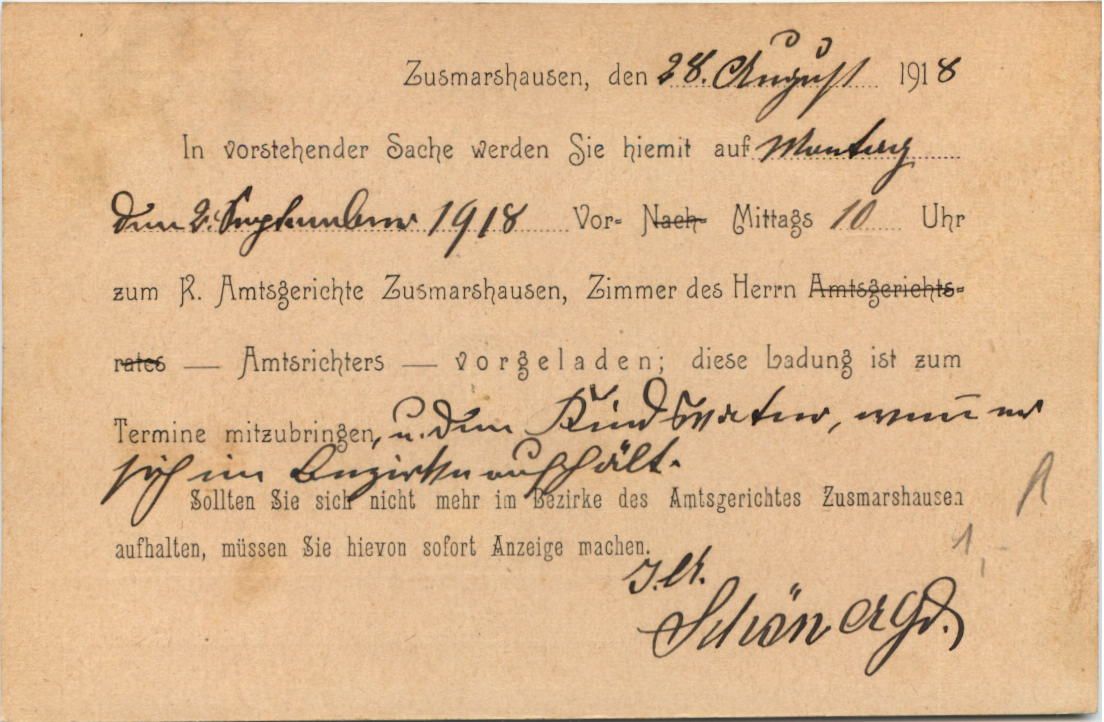 Zusmarshausen, den 28. August 1918
In vorstehender Sache werden Sie hiemit auf Montag
den 2. September 1918 Vor- Nach- Mittags 10 Uhr
zum K. Amtsgerichte Zusmarshausen, Zimmer des Herrn Amtsgerichts-
rates — Amtsrichters — vorgeladen; diese Ladung ist zum
Termine mitzubringen, u. den Kindsvater, wenn er
sich im Bezirke aufhält.
Sollten Sie sich nicht mehr im Bezirke des Amtsgerichtes Zusmarshausen
aufhalten, müssen Sie hievon sofort Anzeige machen.
1,-
Schön